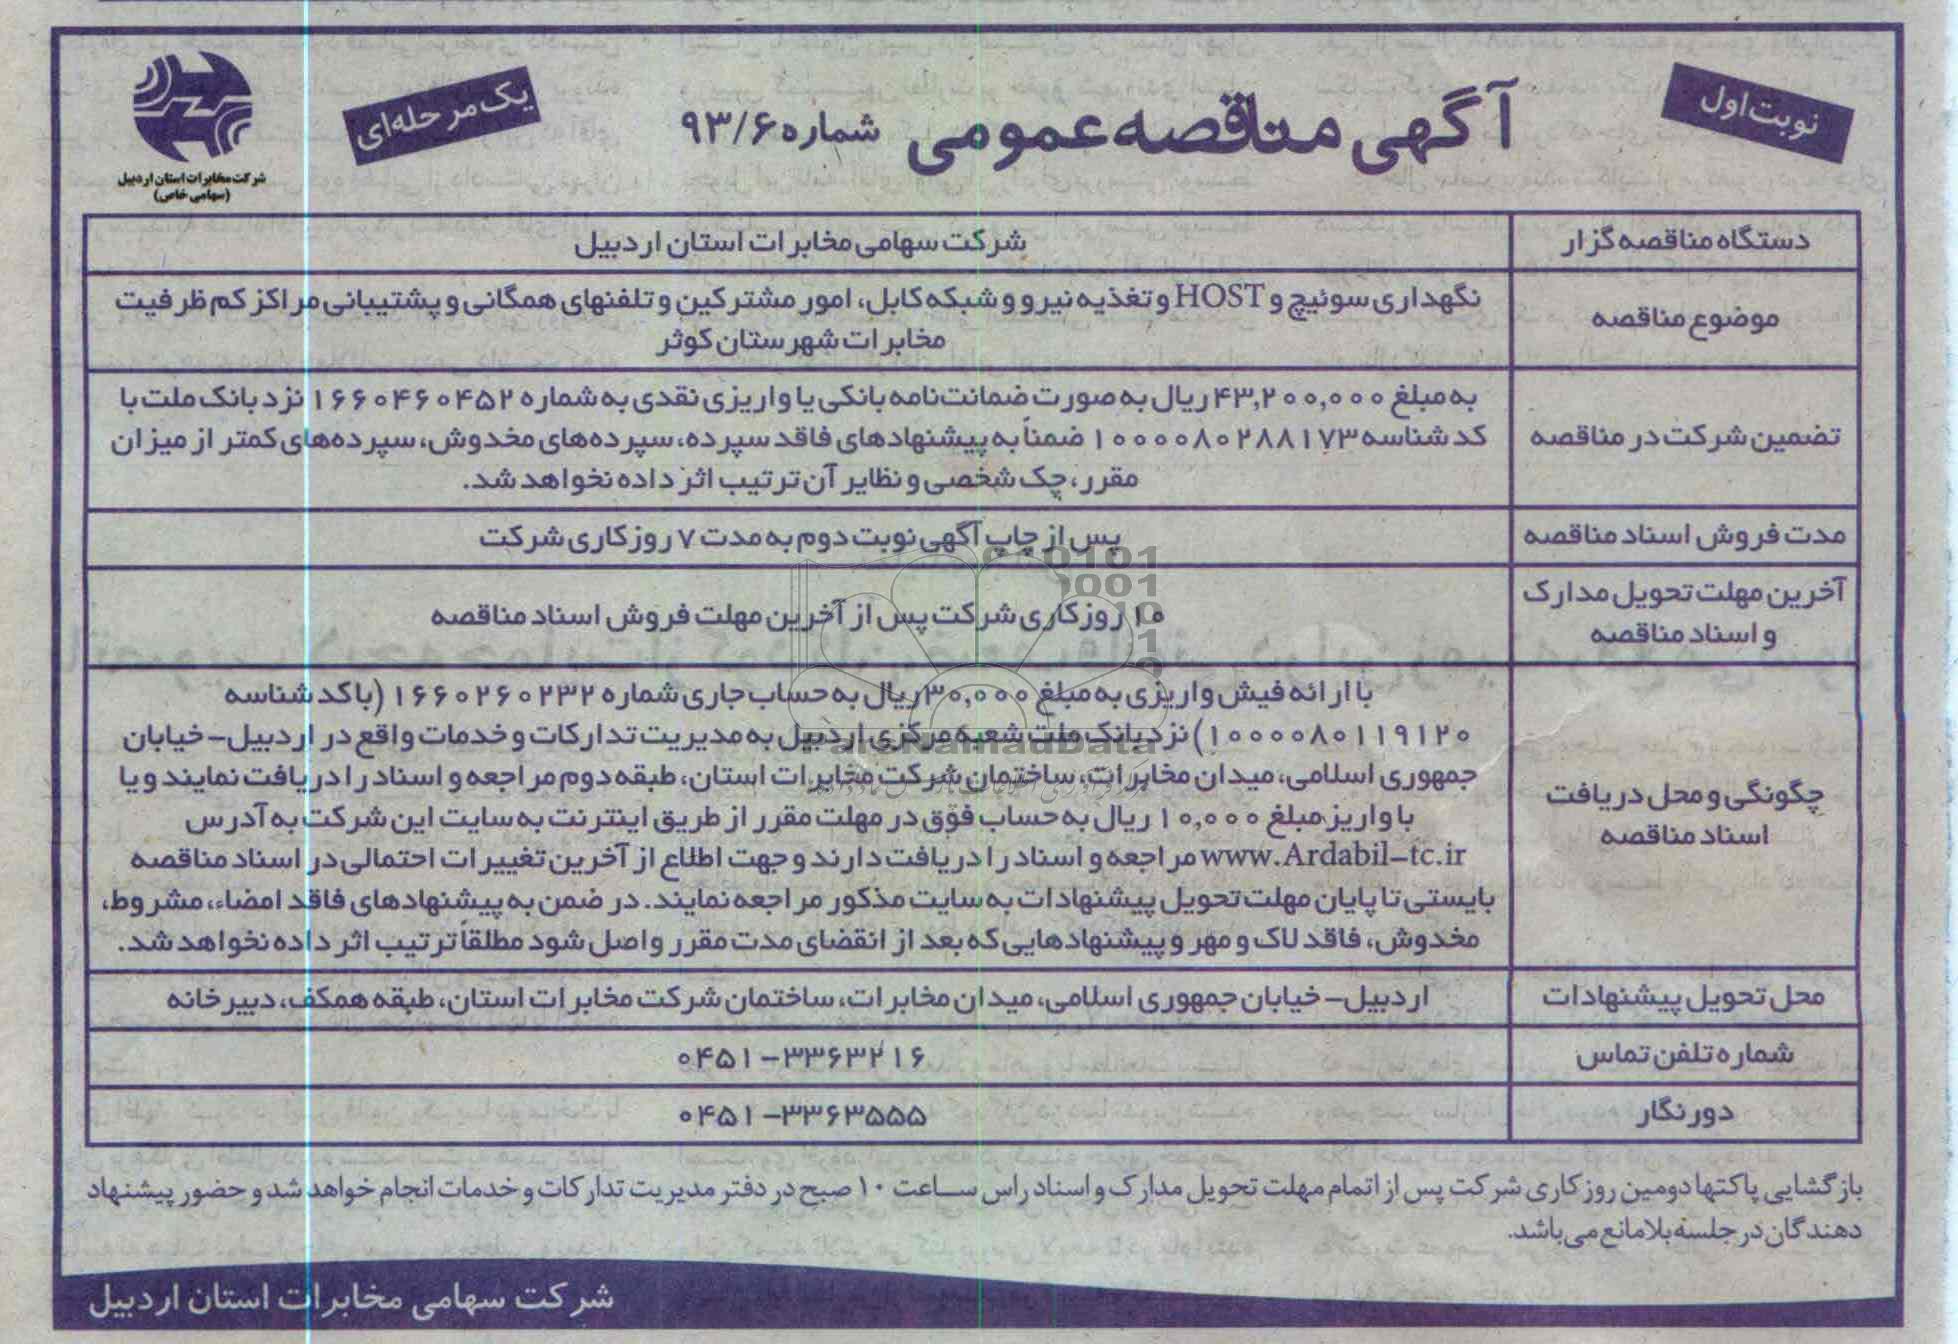 نوبت اول
آگهی مناقصه عمومی شماره ۹۳/۶
یک مرحله‌ای
شرکت مخابرات استان اردبیل
(سهامی خاص)
دستگاه مناقصه گزار
شرکت سهامی مخابرات استان اردبیل
موضوع مناقصه
نگهداری سوئیچ و HOST و تغذیه نیرو و شبکه کابل، امور مشترکین و تلفنهای همگانی و پشتیبانی مراکز کم ظرفیت
مخابرات شهرستان کوثر
تضمین شرکت در مناقصه
به مبلغ ۴۳,۲۰۰,۰۰۰ ریال به صورت ضمانت‌نامه بانکی یا واریزی نقدی به شماره ۱۶۶۰۴۶۰۴۵۲ نزد بانک ملت با
کد شناسه ۱۰۰۰۰۸۰۲۸۸۱۷۳ ضمناً به پیشنهادهای فاقد سپرده، سپرده‌های مخدوش، سپرده‌های کمتر از میزان
مقرر، چک شخصی و نظایر آن ترتیب اثر داده نخواهد شد.
مدت فروش اسناد مناقصه
پس از چاپ آگهی نوبت دوم به مدت ۷ روز کاری شرکت
آخرین مهلت تحویل مدارک
و اسناد مناقصه
۱۰ روز کاری شرکت پس از آخرین مهلت فروش اسناد مناقصه
چگونگی و محل دریافت
اسناد مناقصه
با ارائه فیش واریزی به مبلغ ۳۰,۰۰۰ ریال به حساب جاری شماره ۱۶۶۰۲۶۰۲۳۲ (با کد شناسه
۱۰۰۰۰۸۰۱۱۹۱۲۰) نزد بانک ملت شعبه مرکزی اردبیل به مدیریت تدارکات و خدمات واقع در اردبیل- خیابان
جمهوری اسلامی، میدان مخابرات، ساختمان شرکت مخابرات استان، طبقه دوم مراجعه و اسناد را دریافت نمایند و یا
با واریز مبلغ ۱۰,۰۰۰ ریال به حساب فوق در مهلت مقرر از طریق اینترنت به سایت این شرکت به آدرس
www.Ardabil-tc.ir مراجعه و اسناد را دریافت دارند و جهت اطلاع از آخرین تغییرات احتمالی در اسناد مناقصه
بایستی تا پایان مهلت تحویل پیشنهادات به سایت مذکور مراجعه نمایند. در ضمن به پیشنهادهای فاقد امضاء، مشروط،
مخدوش، فاقد لاک و مهر و پیشنهادهایی که بعد از انقضای مدت مقرر واصل شود مطلقاً ترتیب اثر داده نخواهد شد.
محل تحویل پیشنهادات
اردبیل- خیابان جمهوری اسلامی، میدان مخابرات، ساختمان شرکت مخابرات استان، طبقه همکف، دبیرخانه
شماره تلفن تماس
۰۴۵۱-۳۳۶۳۲۱۶
دورنگار
۰۴۵۱-۳۳۶۳۵۵۵
بازگشایی پاکتها دومین روز کاری شرکت پس از اتمام مهلت تحویل مدارک و اسناد راس ساعت ۱۰ صبح در دفتر مدیریت تدارکات و خدمات انجام خواهد شد و حضور پیشنهاد
دهندگان در جلسه بلامانع می‌باشد.
شرکت سهامی مخابرات استان اردبیل
ParsNamadData